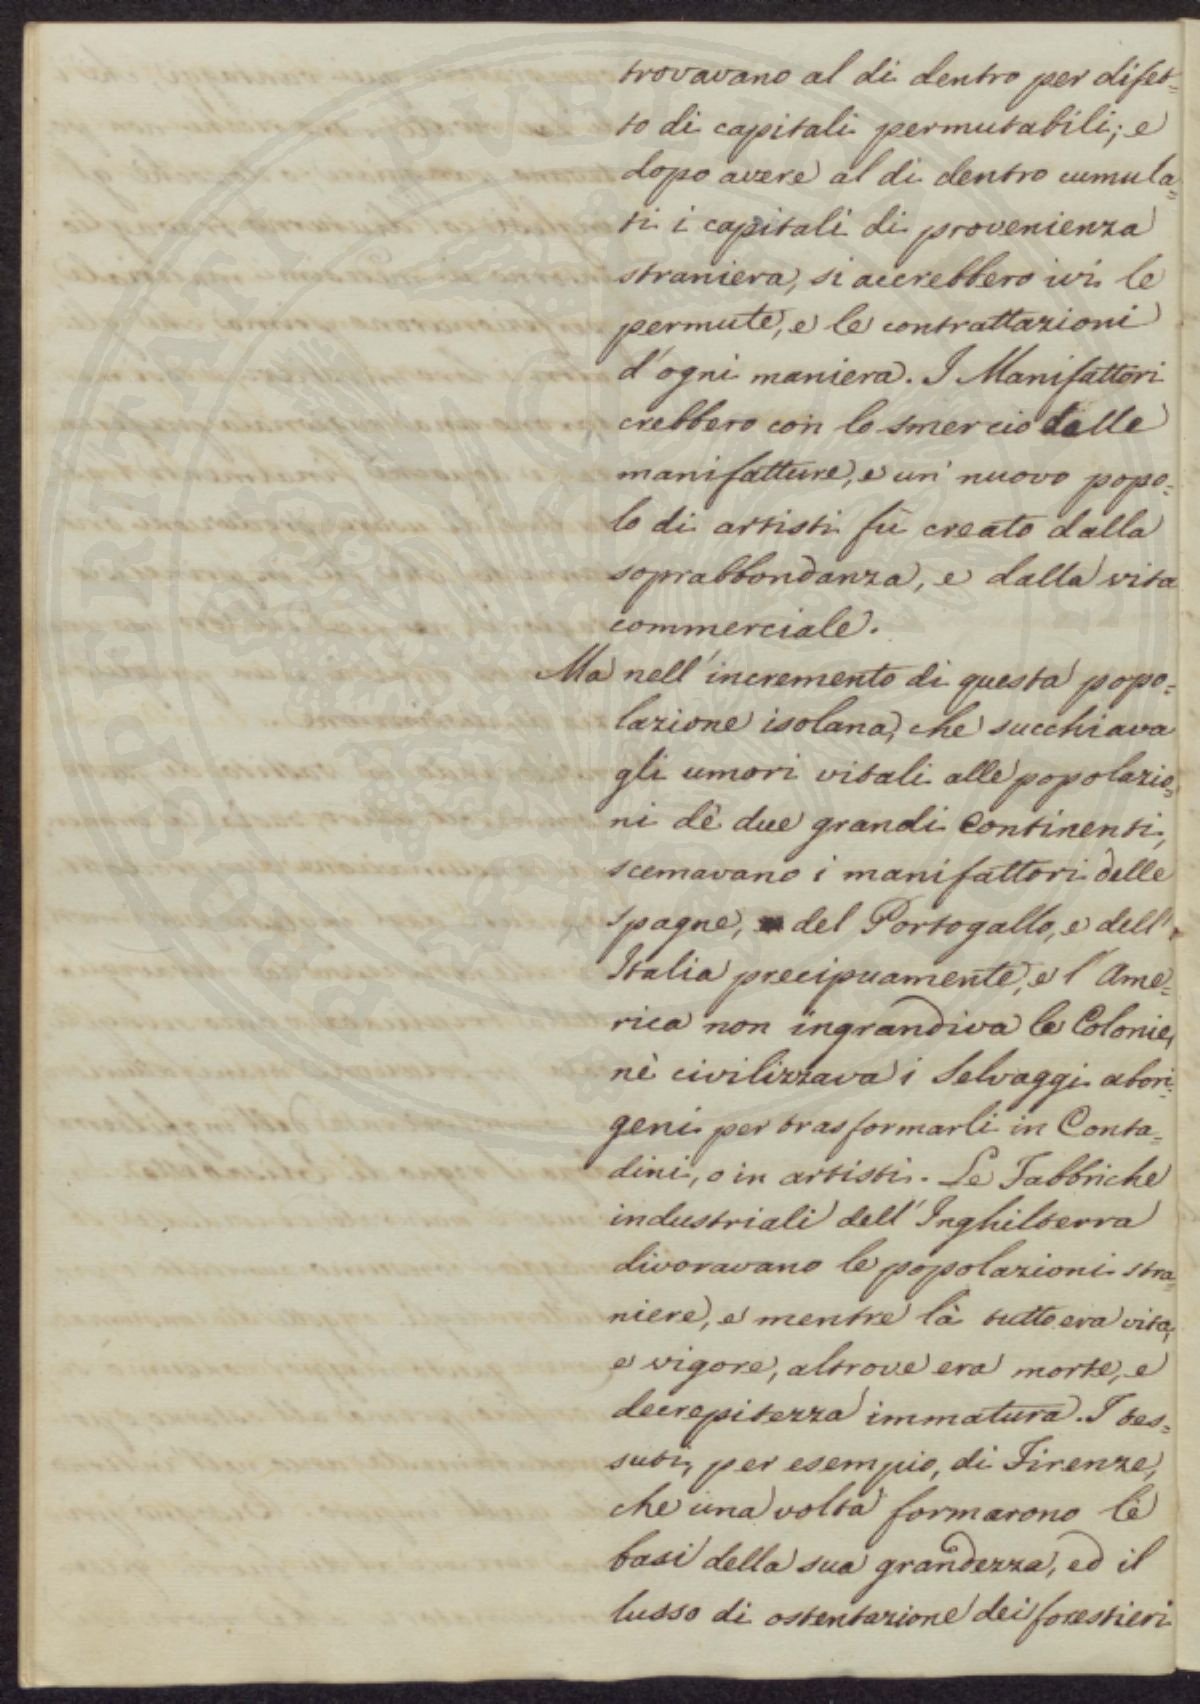 trovavano al di dentro per difet=
to di capitali permutabili; e
dopo avere al di dentro cumula=
ti i capitali di provenienza
straniera, si accrebbero ivi le
permute, e le contrattazioni
d'ogni maniera. I Manifattori
crebbero con lo smercio delle
manifatture, e un nuovo popo=
lo di artisti fù creato dalla
soprabbondanza, e dalla vita
commerciale.
Ma nell'incremento di questa popo=
lazione isolana, che succhiava
gli umori vitali alle popolazio=
ni dè due grandi Continenti,
scemavano i manifattori delle
Spagne, del Portogallo, e dell'
Italia precipuamente, e l'Ame=
rica non ingrandiva le Colonie,
nè civilizzava i Selvaggi abori=
geni per trasformarli in Conta=
dini, o in artisti. Le Fabbriche
industriali dell'Inghilterra
divoravano le popolazioni stra=
niere, e mentre là tutto era vita,
e vigore, altrove era morte, e
decrepitezza immatura. I tes=
suti, per esempio, di Firenze,
che una volta formarono le
basi della sua grandezza, ed il
lusso di ostentazione dei forestieri